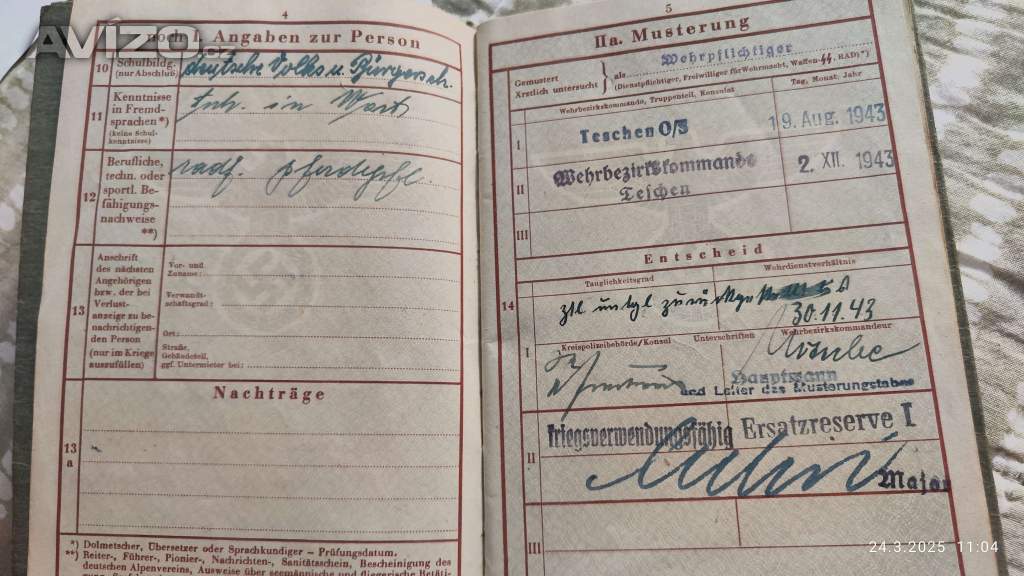 AVIZO.cz
4
noch I. Angaben zur Person
10
Schulbildg.
(nur Abschluß)
deutsche Volks u. Bürgersch.
11
Kenntnisse
in Fremd-
sprachen*)
(keine Schul-
kenntnisse)
in Wort
12
Berufliche,
techn. oder
sportl. Be-
fähigungs-
nachweise
**)
radf.
13
Anschrift
des nächsten
Angehörigen
bzw. der bei
Verlust-
anzeige zu be-
nachrichtigen-
den Person
(nur im Kriege
auszufüllen)
Vor- und
Zuname:
Verwandt-
schaftsgrad:
Ort:
Straße,
Gebäudeteil,
ggf. Untermieter bei:
Nachträge
13
a
*) Dolmetscher, Übersetzer oder Sprachkundiger – Prüfungsdatum.
**) Reiter-, Führer-, Pionier-, Nachrichten-, Sanitätsschein, Bescheinigung des
deutschen Alpenvereins, Ausweise über seemännische und fliegerische Betäti-
5
IIa. Musterung
Gemustert
Ärztlich untersucht
als Wehrpflichtiger
(Dienstpflichtiger, Freiwilliger für Wehrmacht, Waffen-SS, RAD*)
Wehrbezirkskommando, Truppenteil, Konsulat
Tag, Monat, Jahr
I
Teschen O/S
19. Aug. 1943
II
Wehrbezirkskommando
Teschen
2. XII. 1943
III
14
Entscheid
Tauglichkeitsgrad
Wehrdienstverhältnis
ztl untgl
30.11.43
I
Kreispolizeibehörde/Konsul
Unterschriften
Wehrbezirkskommandeur
Hauptmann
und Leiter des Musterungstabes
II
kriegsverwendungsfähig
Ersatzreserve I
Major
III
24.3.2025 11:04